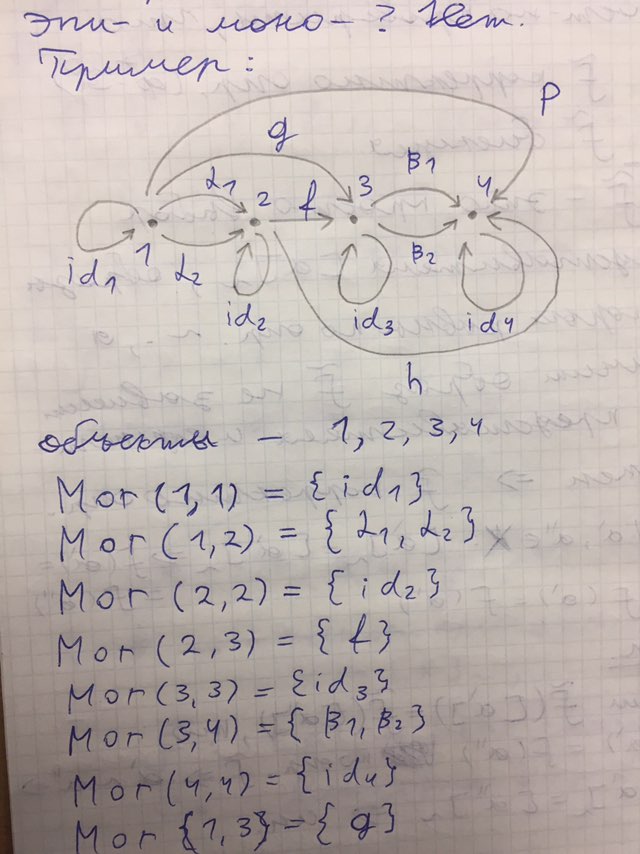 эпи- и моно- ? Нет.
Пример:
P
g
α1 2 f 3 β1 4
1
id1 α2 β2
id2 id3 id4
h
объекты – 1, 2, 3, 4
Mor (1, 1) = {id1}
Mor (1, 2) = {α1, α2}
Mor (2, 2) = {id2}
Mor (2, 3) = {f}
Mor (3, 3) = {id3}
Mor (3, 4) = {β1, β2}
Mor (4, 4) = {id4}
Mor {1, 3} = {g}